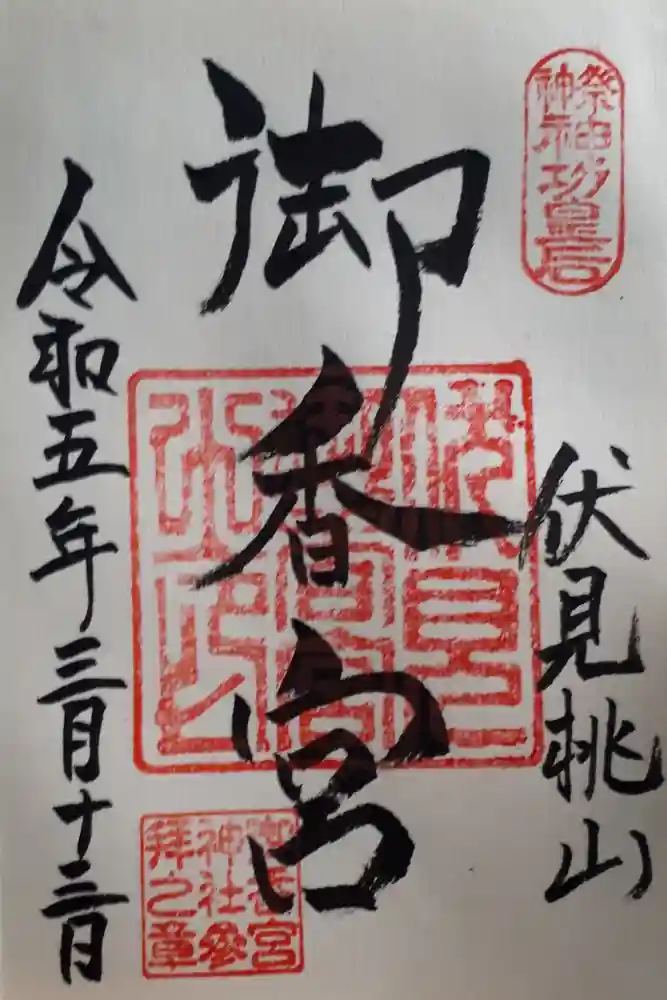 祭神
神功皇后
伏見桃山
御香宮
令和五年三月十三日
御香宮
神社参
拝之章